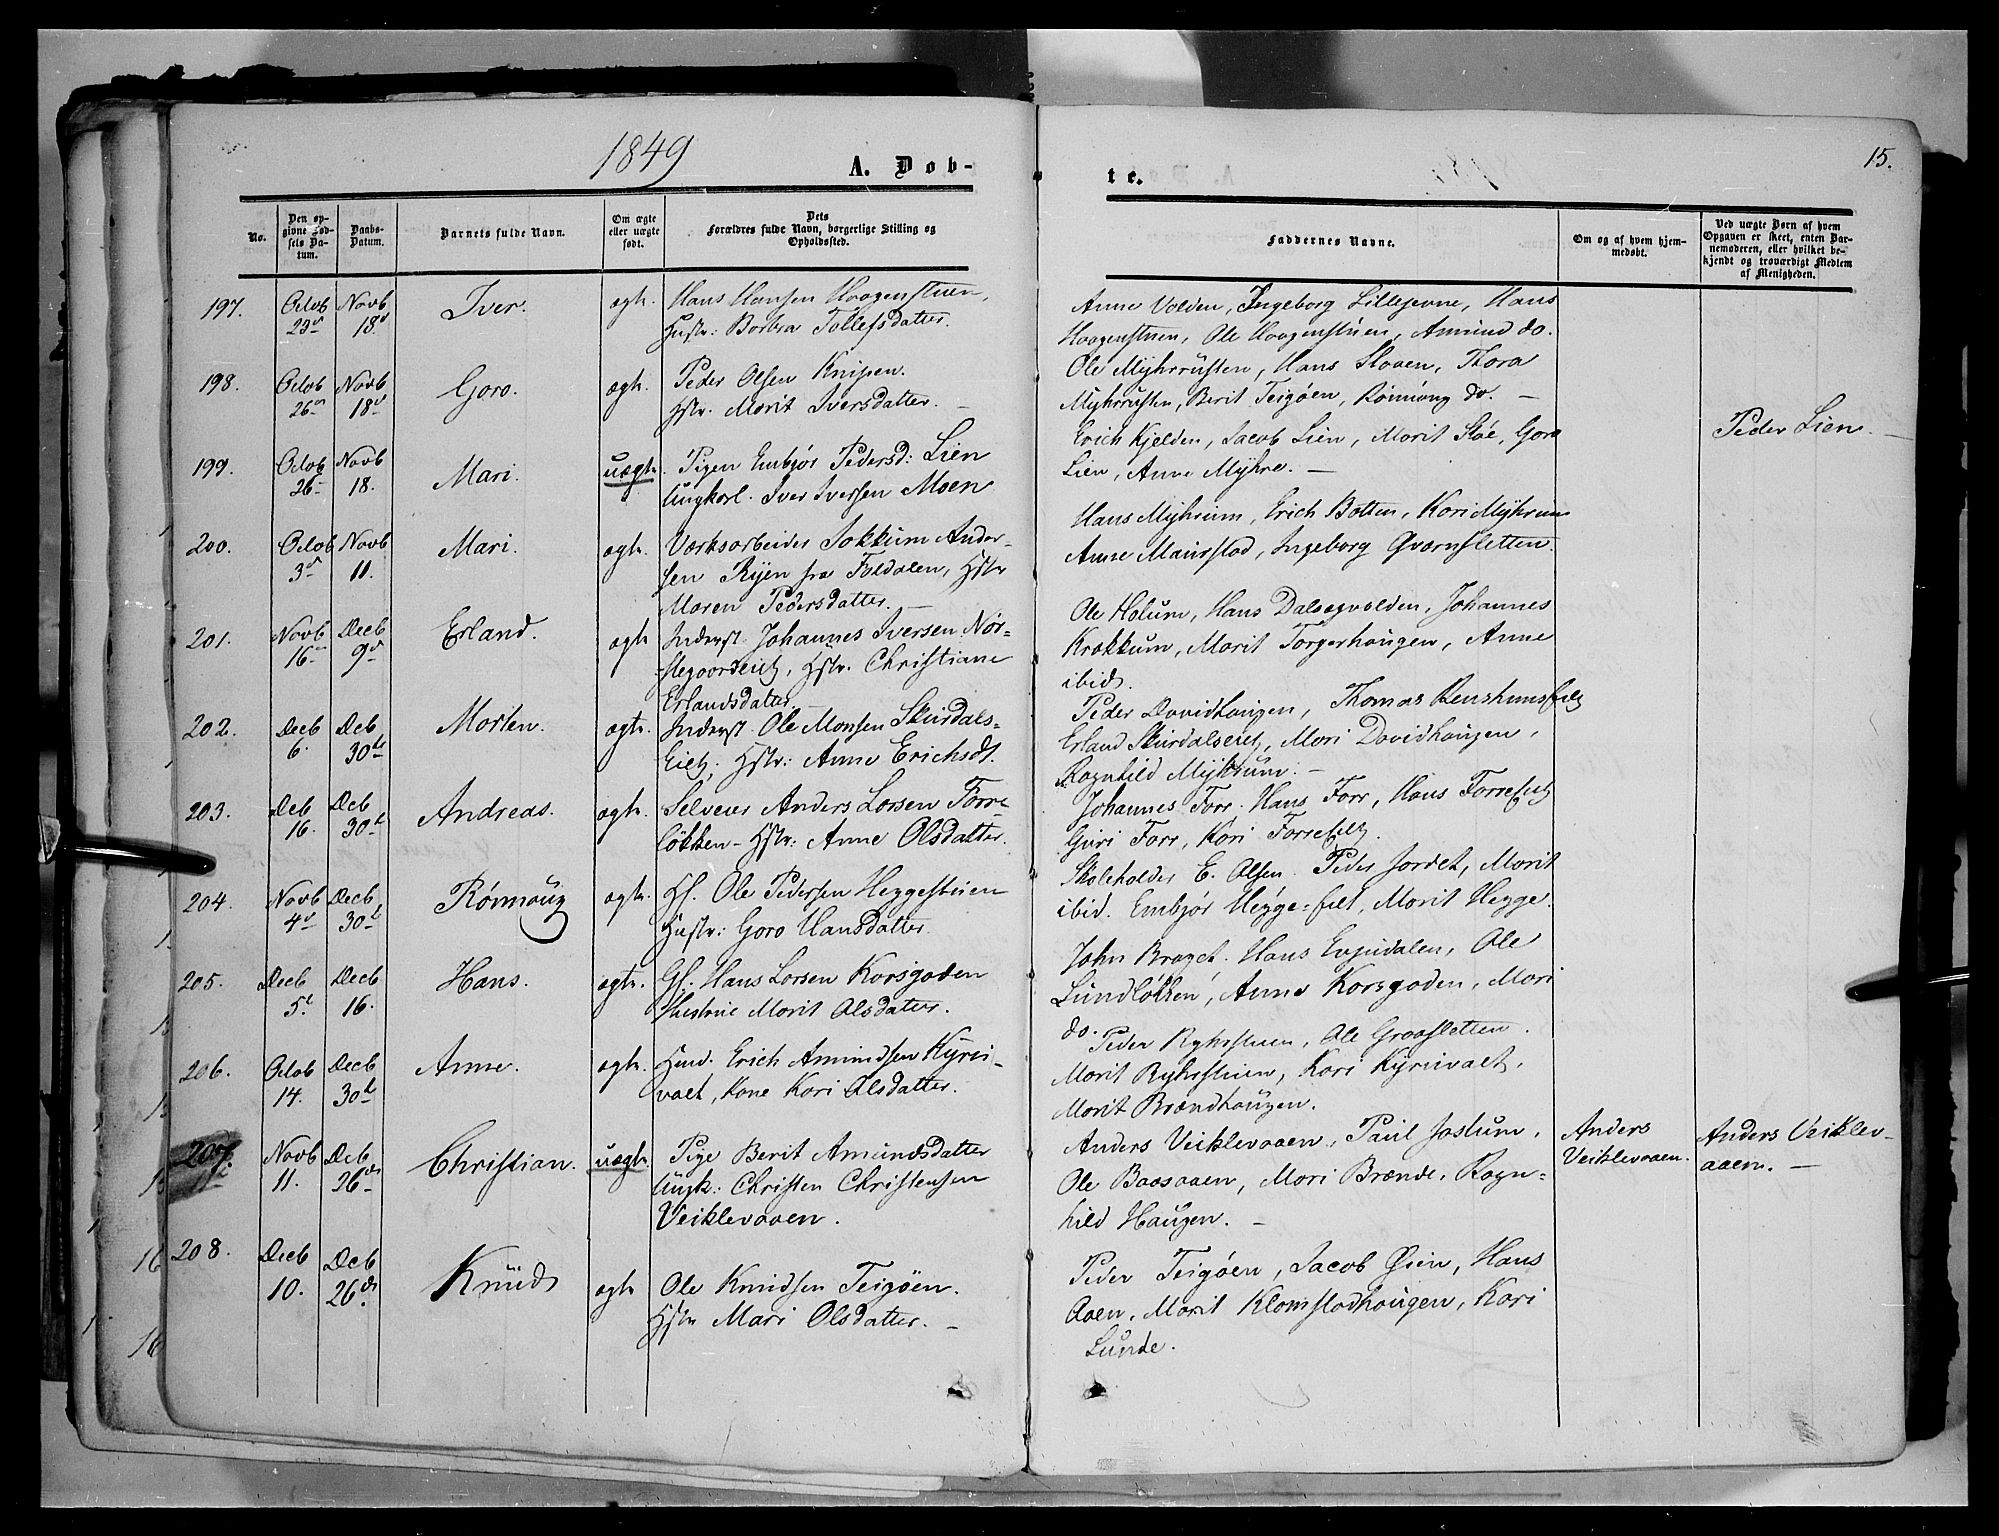 1849
A. Døb-
te.
15.
No.
Den op-
givne Fød-
sels Da-
tum.
Daabs-
Datum.
Barnets fulde Navn.
Om ægte
eller uægte
født.
Dets
Forældres fulde Navn, borgerlige Stilling og
Opholdssted.
Faddernes Navne.
Om og af hvem hjem-
medøbt.
Ved uægte Børn af hvem
Opgaven er skeet, enten Bar-
nemoderen, eller hvilket be-
kjendt og troværdigt Medlem
af Menigheden.
197. Octob Novb Iver. ægte. Hans Hansen Haagenstuen,
23de 18de Hustr: Barbra Tollefsdatter.
Anne Volden, Ingeborg Lillejevne, Hans
Haagenstuen, Ole Haagenstuen, Amund do.
198. Octob Novb Goro. ægte. Peder Olsen Knipen.
26de 18de Hstr. Marit Iversdatter. —
Ole Myhrrusten, Hans Slaaen, Thora
Myhrrusten, Berit Teigøen, Rønnoug do. —
199. Octob Novb Mari. uægte. Pigen Embjør Pedersd: Lien
26 18. Ungkarl. Iver Iversen Moen
Erich Kjelden, Jacob Lien, Marit Sløe, Goro
Lien, Anne Myhre. —
Peder Lien. —
200. Octob Novb Mari. ægte. Værksarbeider Jokkum Ander-
3de 11. sen Ryen fra Foldalen, Hstr
Maren Pedersdatter. —
Hans Myhrum, Erich Botten, Kari Myhrum
Anne Maurstad, Ingeborg Qvernsletten.
201. Novb Decb Erland. ægte Inderst. Johannes Iversen Nør-
16 9de stegaardseiet, Hstr. Christiane
Erlandsdatter.
Ole Holum, Hans Dalsegvolden, Johannes
Krokkum, Marit Torgerhaugen, Anne
ibid.
202. Decb Deb Morten. ægte. Inderst. Ole Monsen Skurdals-
6. 30te Eiet, Hstr: Anne Erichsdt.
Peder Davidhaugen, Thomas
Erland Skurdalseiet, Mari Davidhaugen,
Ragnhild Myhrum. —
203. Deb Deb Andreas. ægte. Selveier Anders Larsen Forr-
16. 30te løkken – Hstr: Anne Olsdatter.
Johannes Forr. Hans Forr, Hans Forreeiet
Guri Forr, Kari Forreeiet.
204. Novb Decb Rønnoug ægte. Hf. Ole Pedersen Heggestuen
4de 30te Hustr: Goro Hansdatter.
Skoleholder E. Olsen. Peder Jordet, Marit
ibid. Embjør Hegge-eiet, Marit Hegge.
205. Decb Decb Hans. ægte. Gf. Hans Larsen Korsgaden
5te 16. Hustrue Marit Olsdatter.
John Braget. Hans Evjudalen, Ole
Lundløkken, Anne Korsgaden, Mari
do.
206. Octob Decb Anne. ægte. Husd. Erich Amundsen Kyrri-
14. 30te vaet, Kone Kari Olsdatter.
Peder Ryhrstuen, Ole Graasletten.
Marit Ryhrstuen, Kari Kyrrivaet,
Marit Brændhaugen.
207. Novb Deb Christian. uægte. Pige Berit Amundsdatter
11. 26de Ungk: Christen Christensen
Veiklevaaen.
Anders Veiklevaaen, Paul Joslum,
Ole Baasaaen, Mari Brænde, Ragn-
hild Haugen. —
Anders
Veiklevaaen.
Anders Veiklev-
aaen. —
208. Decb Deb Knud ægte Ole Knudsen Teigøen.
10. 26de Hstr Mari Olsdatter. —
Peder Teigøen, Jacob Øien, Hans
Aaen, Marit Klomstadhaugen, Kari
Lunde.